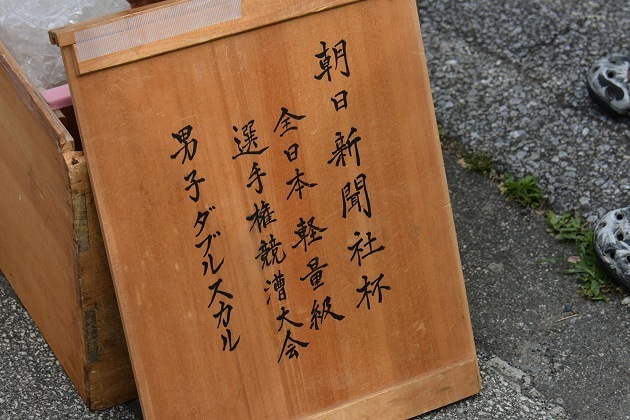 朝日新聞社杯
全日本軽量級
選手権競漕大会
男子ダブルスカル